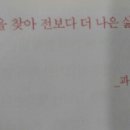 을 찾아 전보다 더 나은 삶
_파